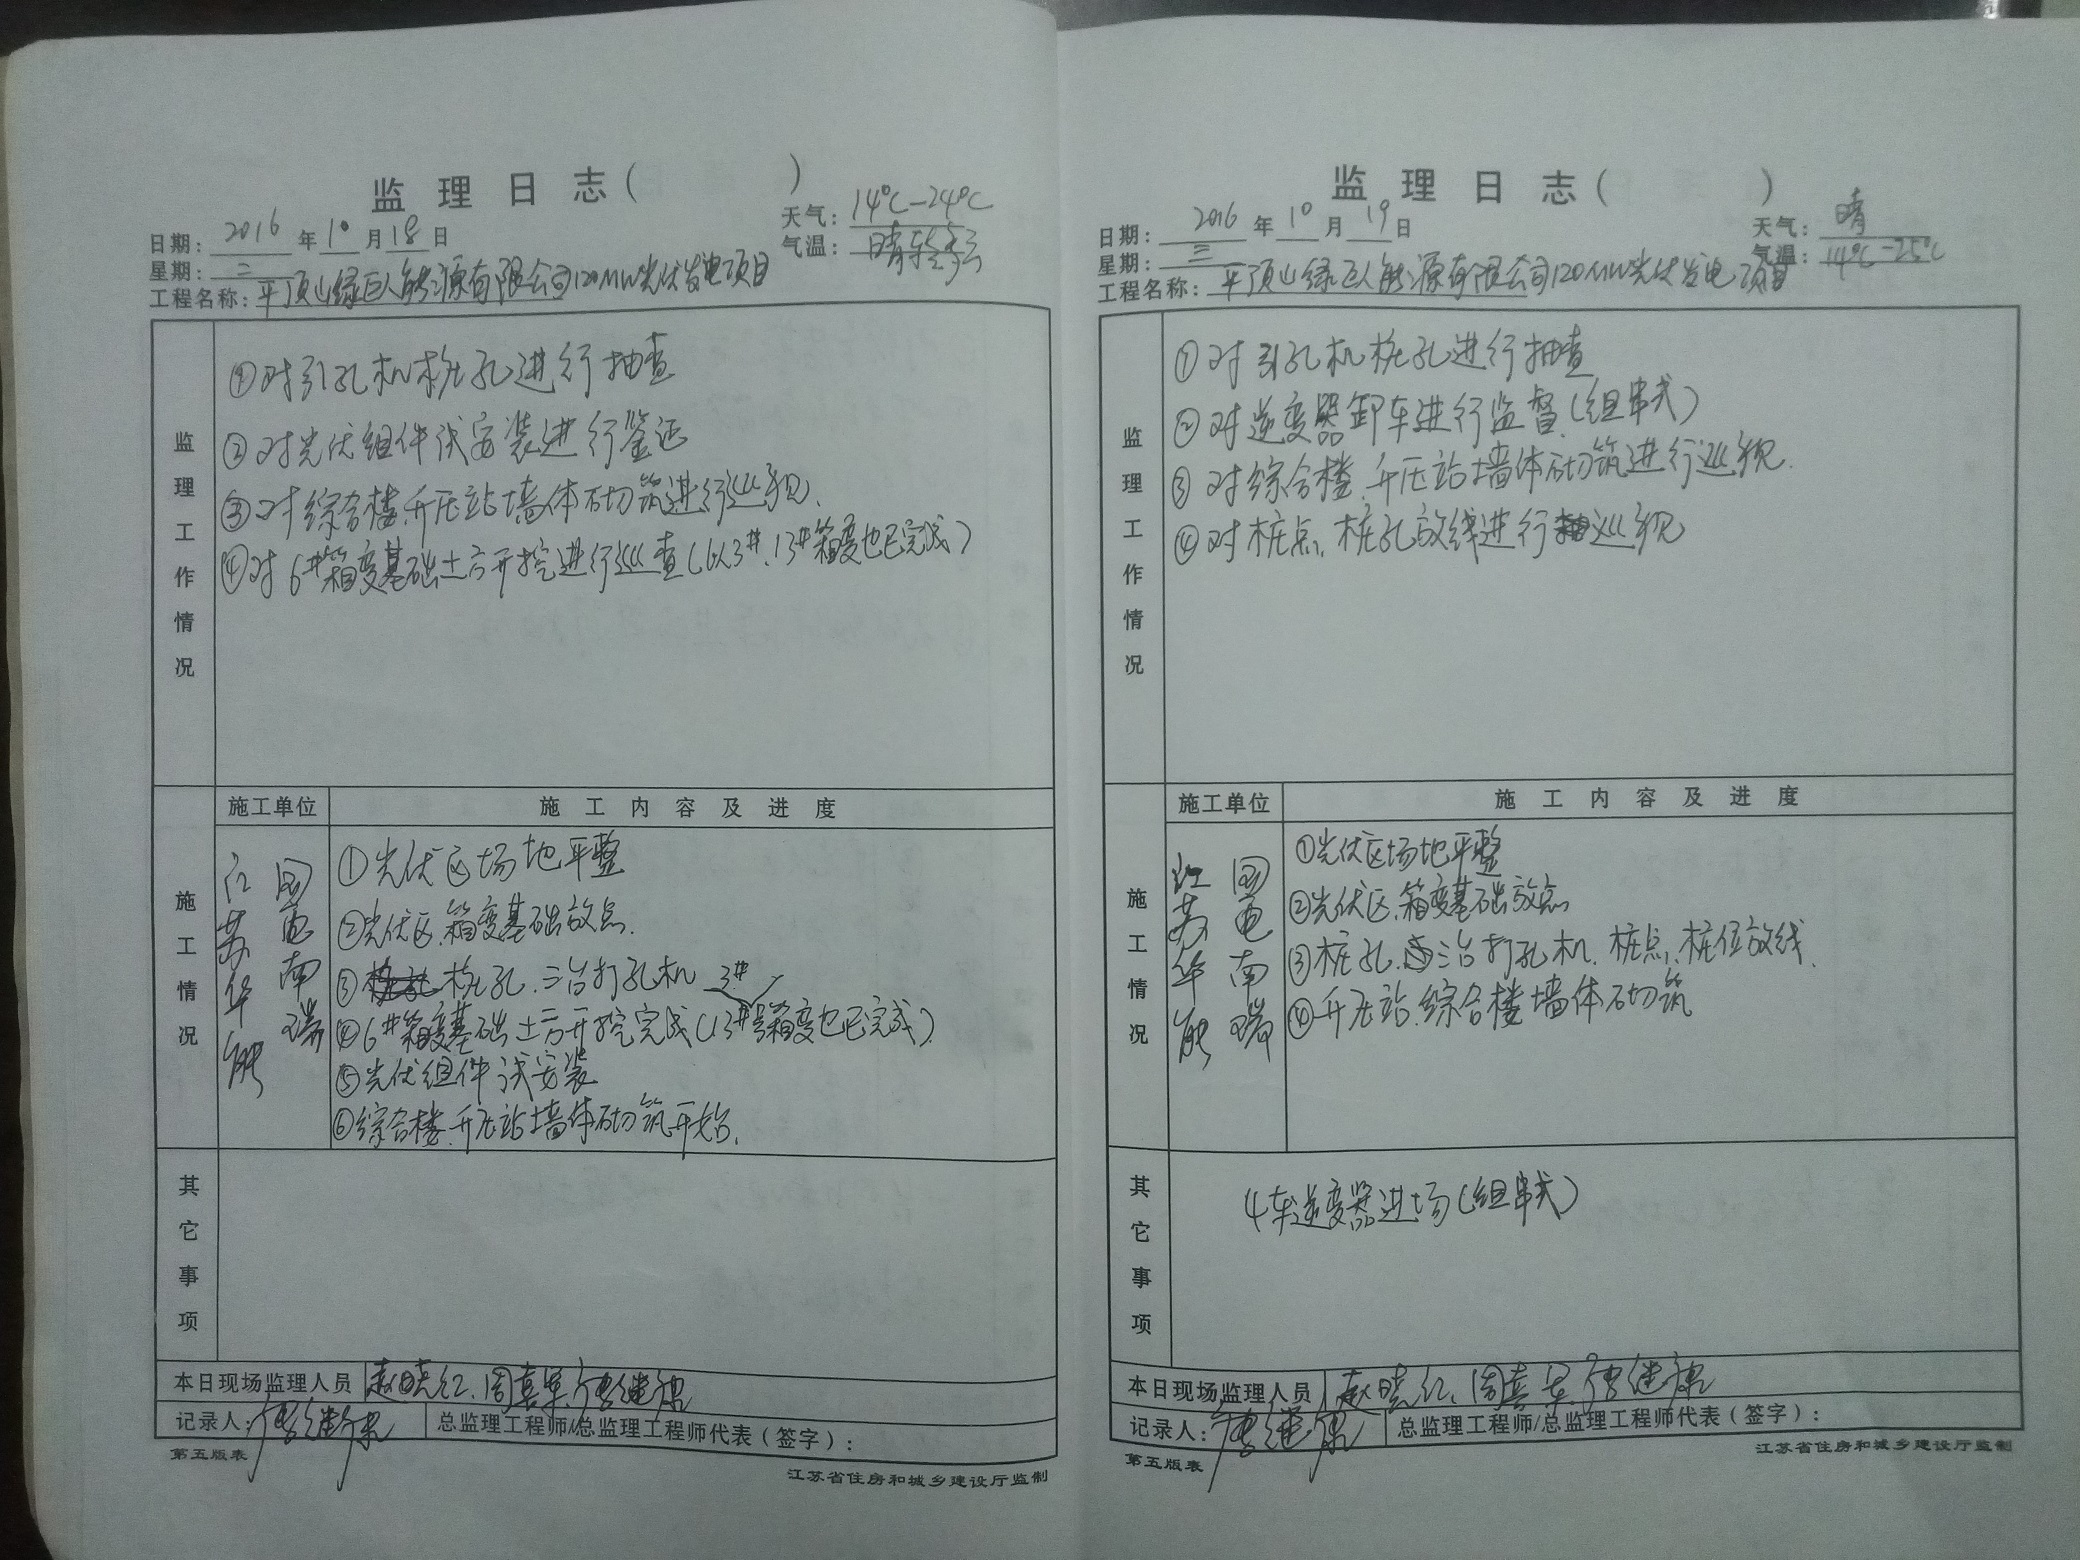 监理日志( )
日期: 2016 年 10 月 18 日
天气: 14℃-24℃
星期: 二
气温: 晴转多云
工程名称: 平顶山绿巨人能源有限公司120MW光伏发电项目
监理工作情况
①对引孔机桩孔进行抽查
②对光伏组件试安装进行鉴证
③对综合楼、升压站墙体砌筑进行巡视.
④对6#箱变基础土方开挖进行巡查(以3#、13#箱变也已完成)
施工情况
施工单位
施工内容及进度
国电南瑞
江苏华能
①光伏区场地平整
②光伏区、箱变基础放点.
③桩孔.三台打孔机
3#
④6#箱变基础土方开挖完成(13#箱变也已完成).
⑤光伏组件试安装
⑥综合楼、升压站墙体砌筑开始.
其它事项
本日现场监理人员 赵晓红、周喜军、
记录人:
总监理工程师/总监理工程师代表(签字):
第五版表
江苏省住房和城乡建设厅监制
监理日志( )
日期: 2016 年 10 月 19 日
天气: 晴
星期: 三
气温: 14℃-25℃
工程名称: 平顶山绿巨人能源有限公司120MW光伏发电项目
监理工作情况
①对引孔机桩孔进行抽查
②对逆变器卸车进行监督.(组串式)
③对综合楼、升压站墙体砌筑进行巡视.
④对桩点、桩孔放线进行巡视
施工情况
施工单位
施工内容及进度
国电南瑞
江苏华能
①光伏区场地平整
②光伏区、箱变基础放点
③桩孔.三台打孔机.桩点、桩位放线.
④升压站.综合楼墙体砌筑
其它事项
4车逆变器进场(组串式)
本日现场监理人员 赵晓红、周喜军、
记录人:
总监理工程师/总监理工程师代表(签字):
第五版表
江苏省住房和城乡建设厅监制